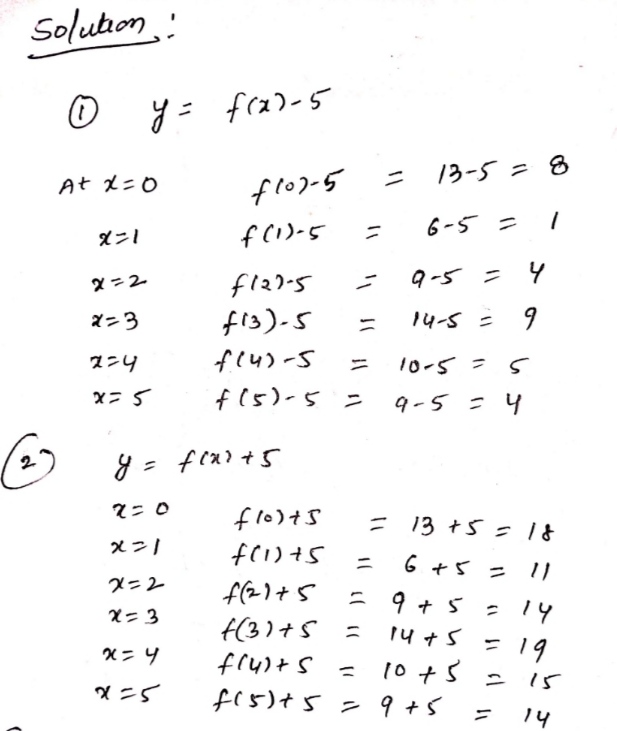 Solution :
① y = f(x)-5
At x=0 f(0)-5 = 13-5 = 8
x=1 f(1)-5 = 6-5 = 1
x=2 f(2)-5 = 9-5 = 4
x=3 f(3)-5 = 14-5 = 9
x=4 f(4)-5 = 10-5 = 5
x=5 f(5)-5 = 9-5 = 4
② y = f(x)+5
x=0 f(0)+5 = 13+5 = 18
x=1 f(1)+5 = 6+5 = 11
x=2 f(2)+5 = 9+5 = 14
x=3 f(3)+5 = 14+5 = 19
x=4 f(4)+5 = 10+5 = 15
x=5 f(5)+5 = 9+5 = 14